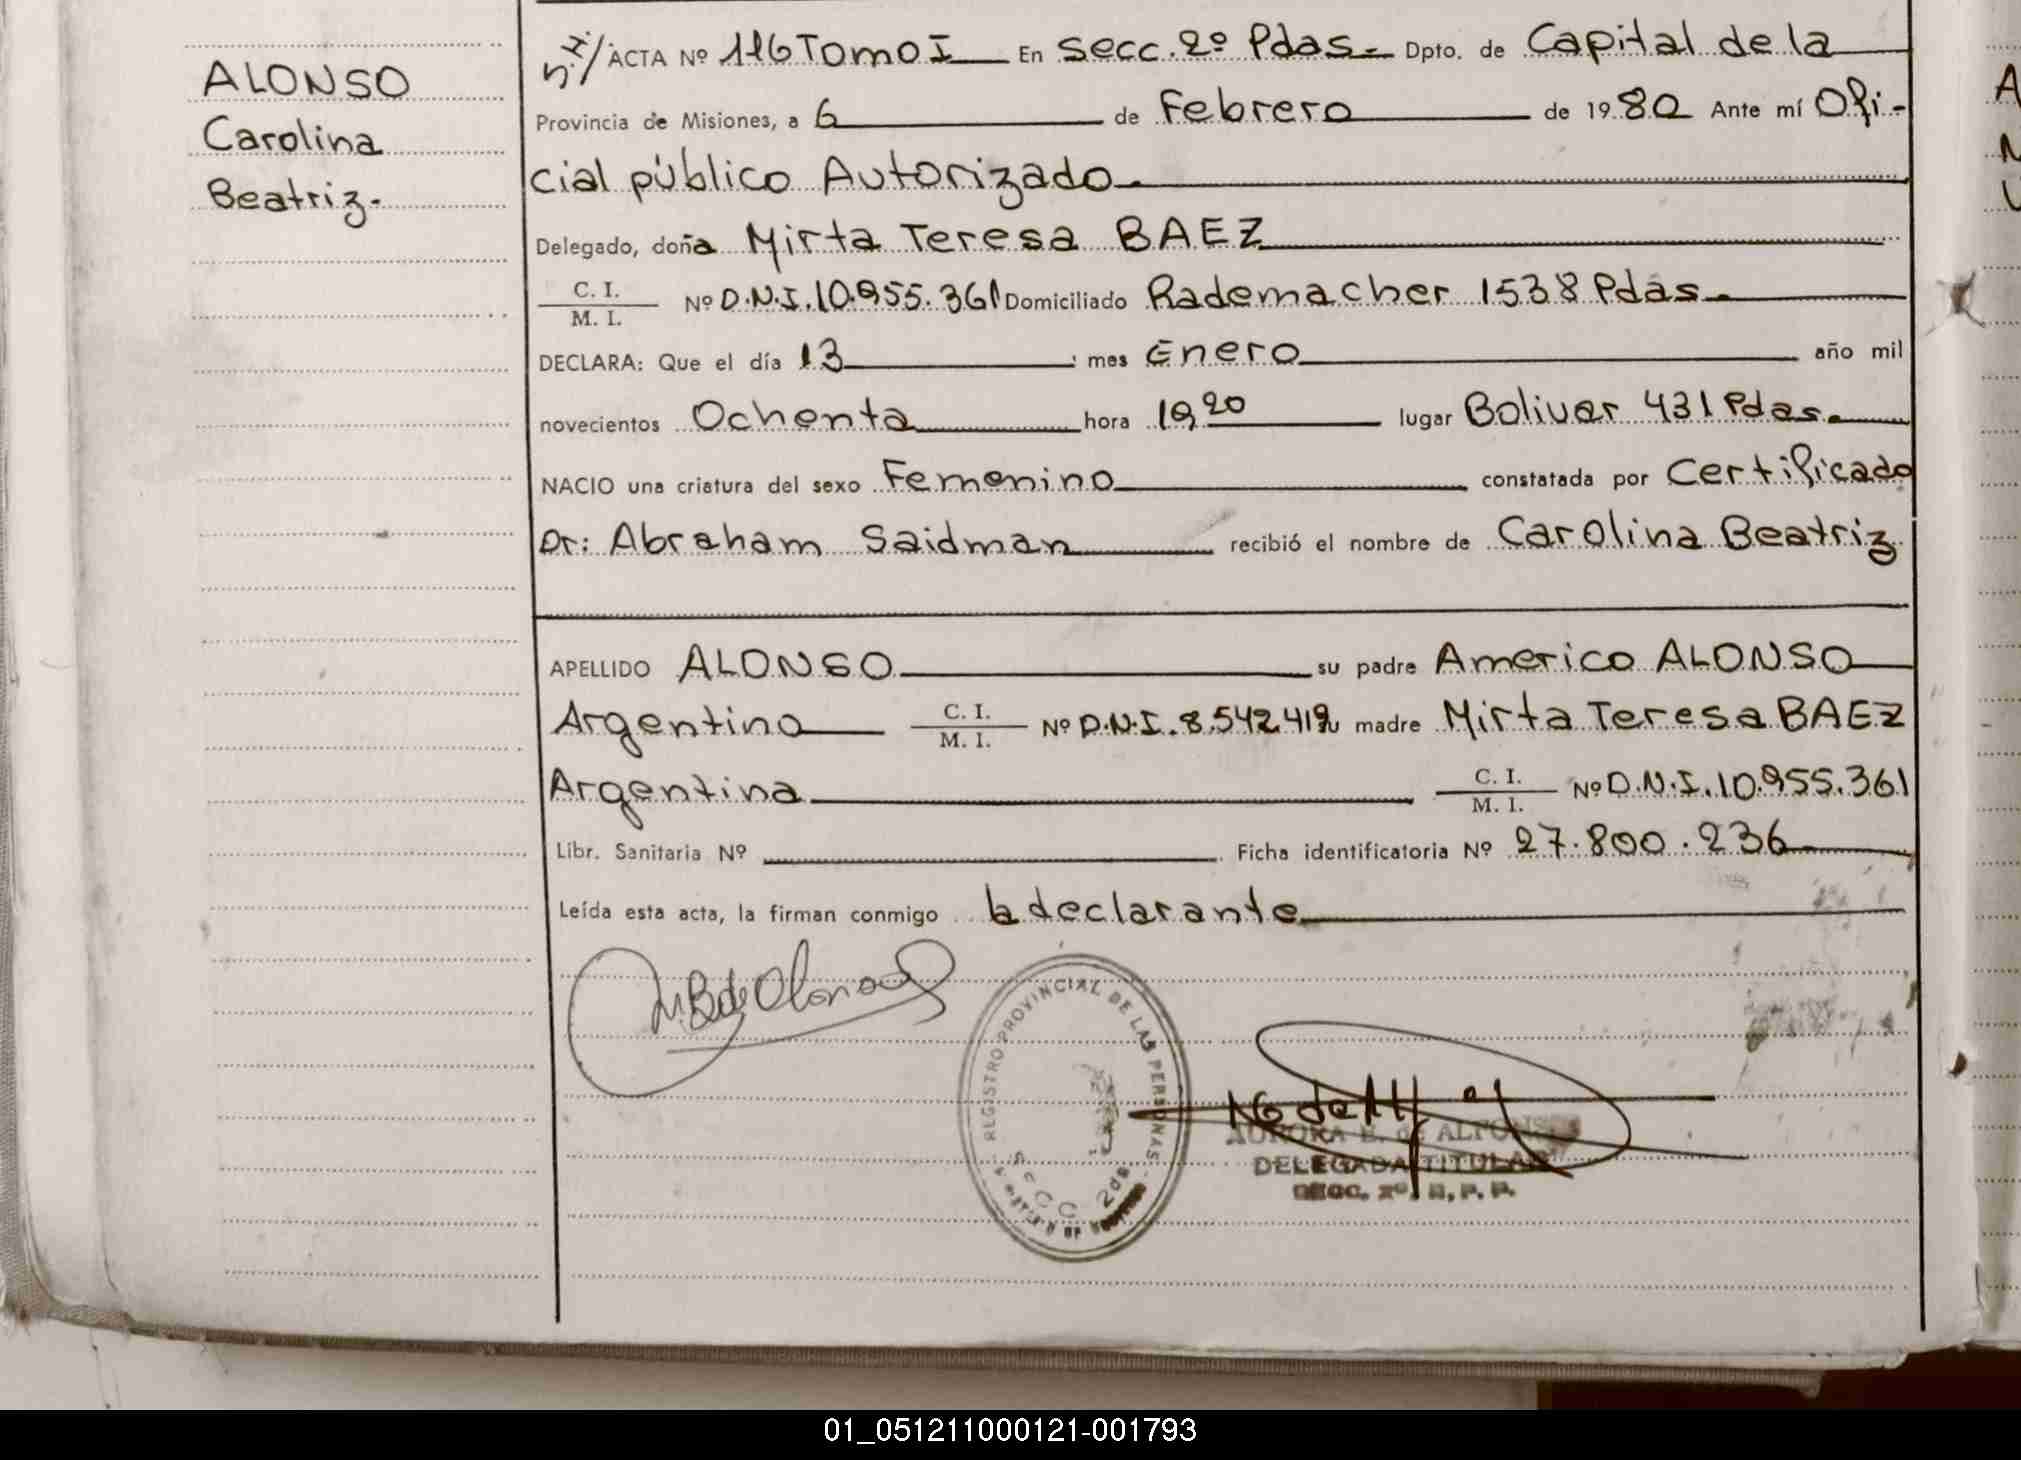 ALONSO
Carolina
Beatriz.
S.H./ ACTA Nº 116 Tomo I En Secc. 2º Pdas. Dpto. de Capital de la
Provincia de Misiones, a 6 de Febrero de 1980 Ante mí Ofi-
cial público Autorizado.
Delegado, doña Mirta Teresa BAEZ
C. I.
M. I. Nº D.N.I. 10.955.361 Domiciliado Rademacher 1538 Pdas.
DECLARA: Que el día 13 mes Enero año mil
novecientos Ochenta hora 19,20 lugar Bolivar 431 Pdas.
NACIO una criatura del sexo Femenino constatada por Certificado
Dr: Abraham Saidman recibió el nombre de Carolina Beatriz
APELLIDO ALONSO su padre Americo ALONSO
Argentino C. I.
M. I. Nº D.N.I. 8.542.419 su madre Mirta Teresa BAEZ
Argentina C. I.
M. I. Nº D.N.I. 10.955.361
Libr. Sanitaria Nº Ficha identificatoria Nº 27.800.236
Leída esta acta, la firman conmigo la declarante
REGISTRO PROVINCIAL DE LAS PERSONAS
Secc 2da
AURORA B. de ALFONSO
DELEGADA TITULAR
SECC. 2º. R. P. P.
01_051211000121-001793